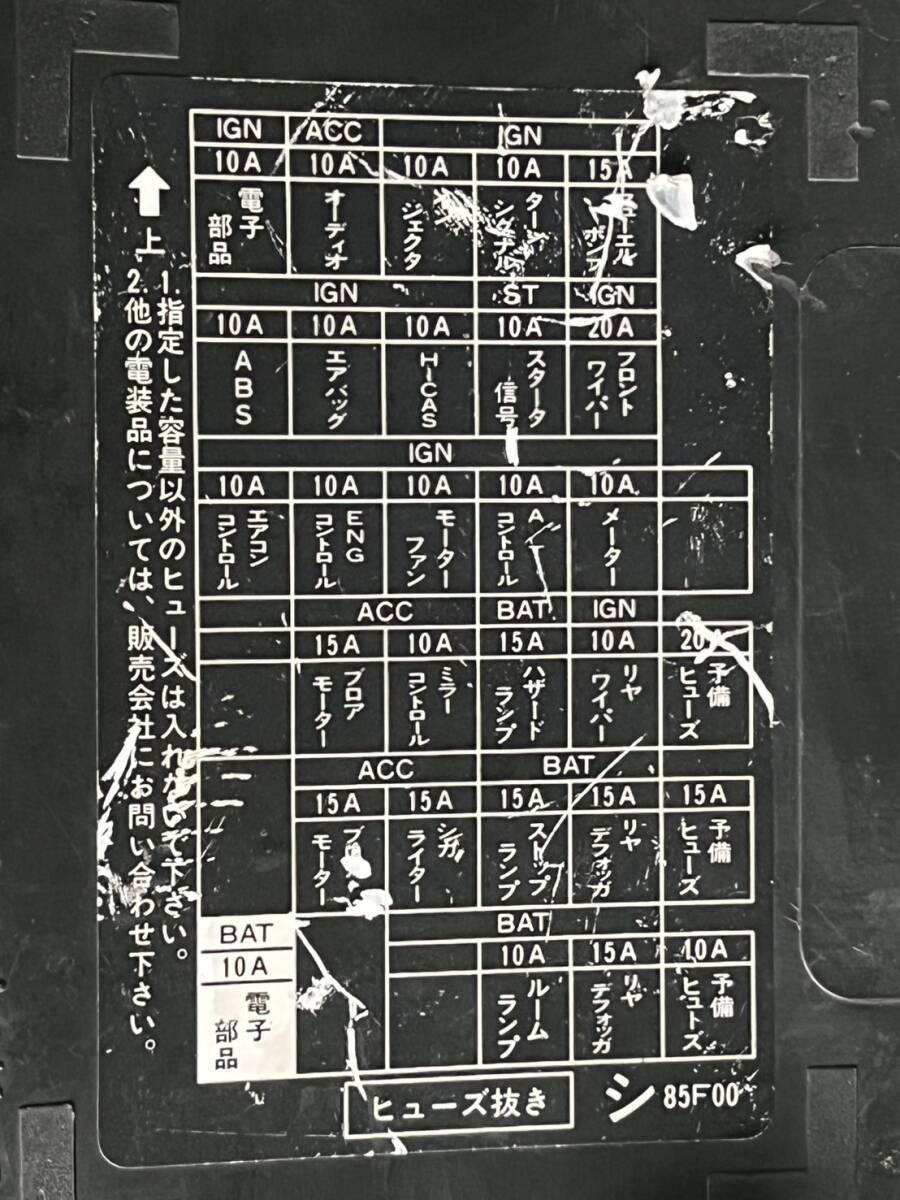 IGN ACC IGN
10A 10A 10A 10A 15A
電子部品 オーディオ ジェクタ ターンシグナル フューエルポンプ
IGN ST IGN
10A 10A 10A 10A 20A
ABS エアバッグ HICAS スタータ信号 フロントワイパー
IGN
10A 10A 10A 10A 10A
エアコンコントロール ENGコントロール モーターファン コントロール メーター
ACC BAT IGN
15A 10A 15A 10A 20A
ブロアモーター ミラーコントロール ハザードランプ リヤワイパー 予備ヒューズ
ACC BAT
15A 15A 15A 15A 15A
モーター シガライター ストップランプ リヤデフォッガ 予備ヒューズ
BAT BAT
10A 10A 15A 10A
電子部品 ルームランプ リヤデフォッガ 予備ヒューズ
ヒューズ抜き シ 85F00
上
1.指定した容量以外のヒューズは入れないで下さい。
2.他の電装品については、販売会社にお問い合わせ下さい。